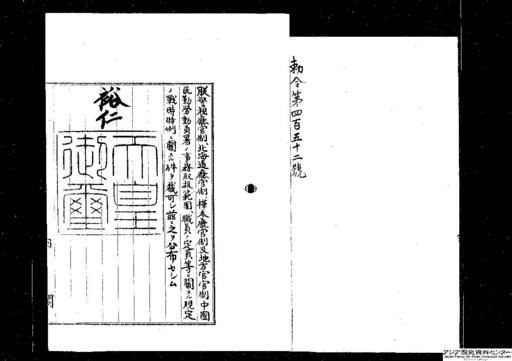 勅令第四百五十二號
朕警視廳官制北海道廳官制樺太廳官制及地方官官制中國
民勤勞動員署ノ事務取扱範圍、職員ノ定員等ニ關スル規定
ノ戰時特例ニ關スル件ヲ裁可シ茲ニ之ヲ公布セシム
裕仁
天皇御璽
内閣
アジア歴史資料センター